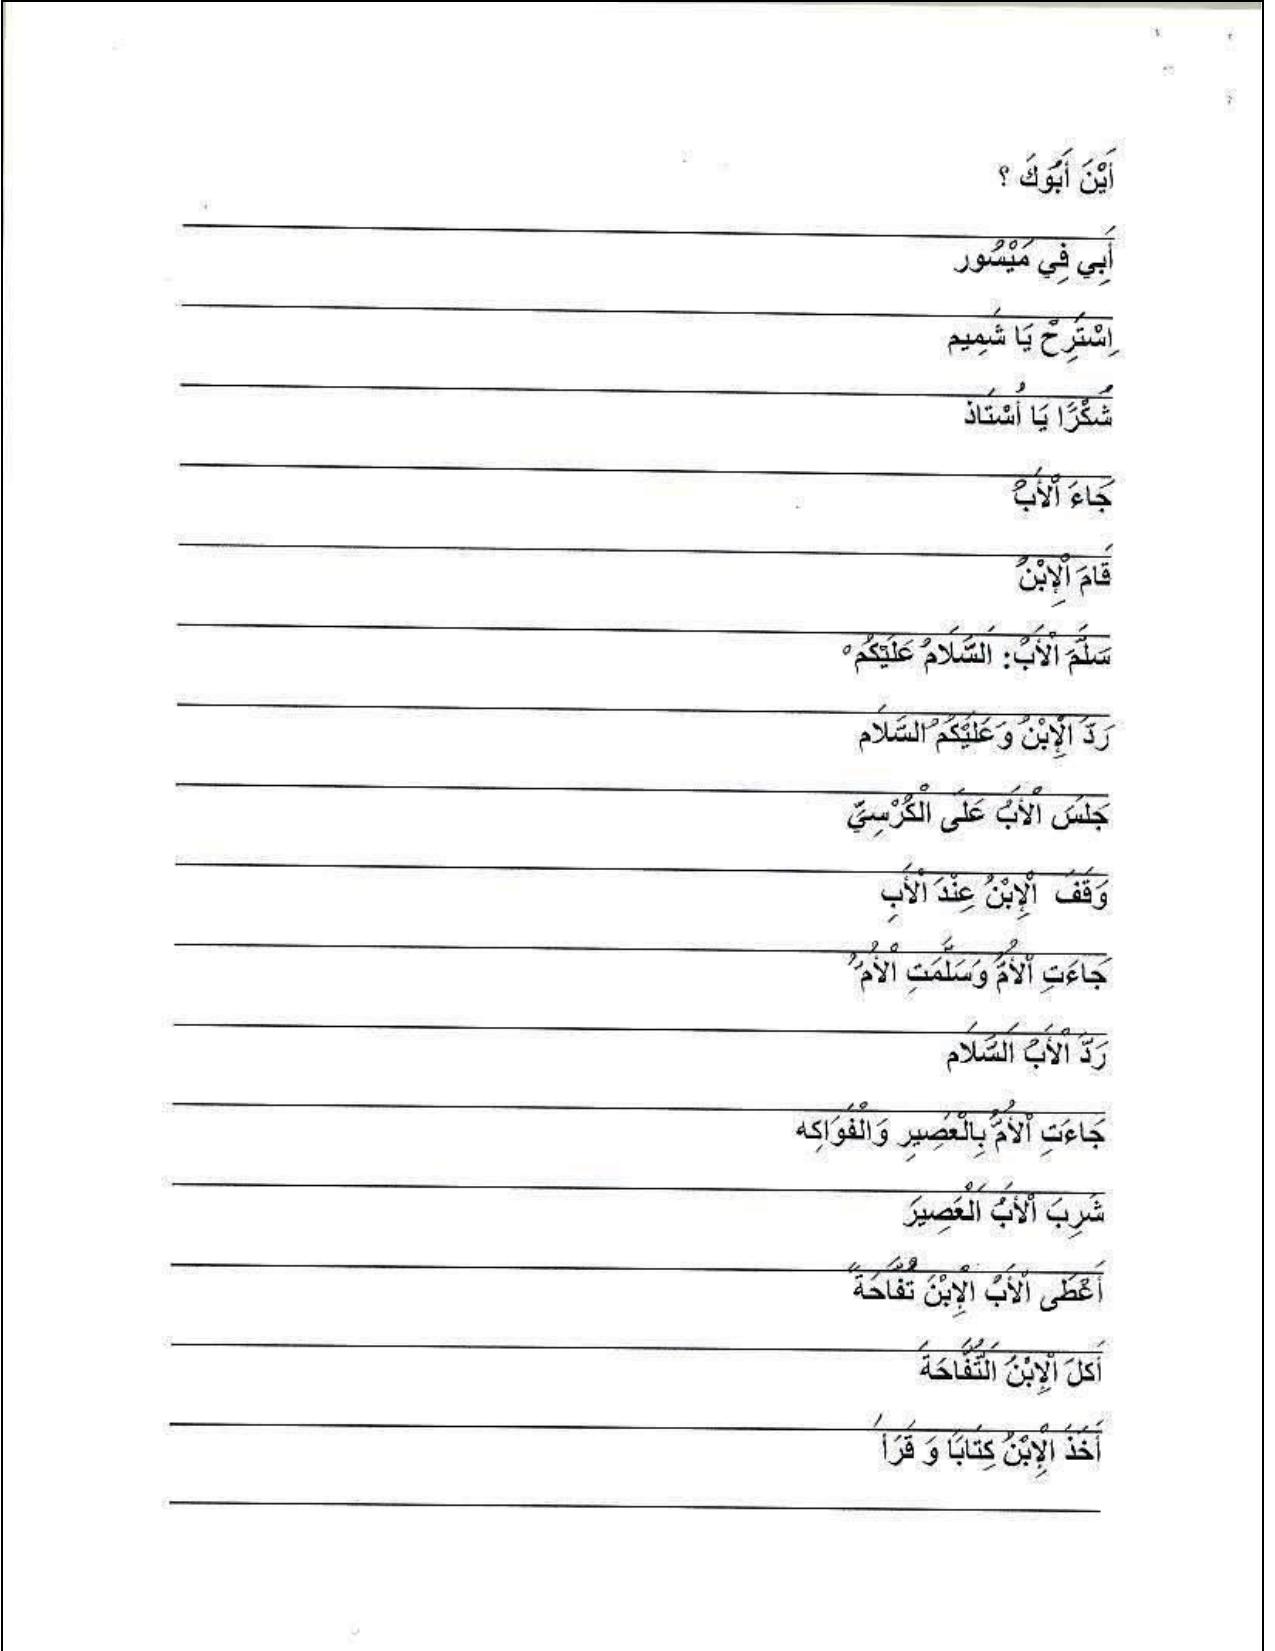 أَيْنَ أَبُوكَ ؟
أَبِي فِي مَيْسُور
اِسْتَرِحْ يَا شَمِيم
شُكْرًا يَا أُسْتَاذْ
جَاءَ اْلأَبُ
قَامَ اْلإِبْنُ
سَلَّمَ اْلأَبُ: اَلسَّلَامُ عَلَيْكُمْ
رَدَّ اْلإِبْنُ وَعَلَيْكُمُ السَّلَام
جَلَسَ اْلأَبُ عَلَى الْكُرْسِيِّ
وَقَفَ اْلإِبْنُ عِنْدَ اْلأَبِ
جَاءَتِ اْلأُمُّ وَسَلَّمَتِ اْلأُمُّ
رَدَّ اْلأَبُ اَلسَّلَام
جَاءَتِ اْلأُمُّ بِالْعَصِيرِ وَالْفَوَاكِه
شَرِبَ اْلأَبُ اَلْعَصِيرَ
أَعْطَى اْلأَبُ اْلإِبْنَ تُفَّاحَةً
أَكَلَ اْلإِبْنُ اَلتُّفَّاحَةَ
أَخَذَ اْلإِبْنُ كِتَابًا وَ قَرَأَ